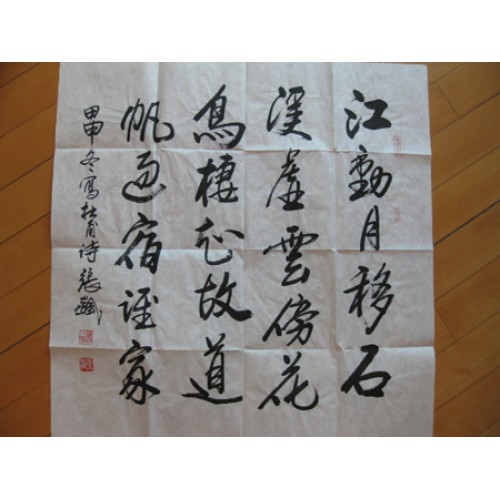 江動月移石
溪虚雲傍花
鳥棲知故道
帆過宿誰家
甲申冬寫杜甫诗張